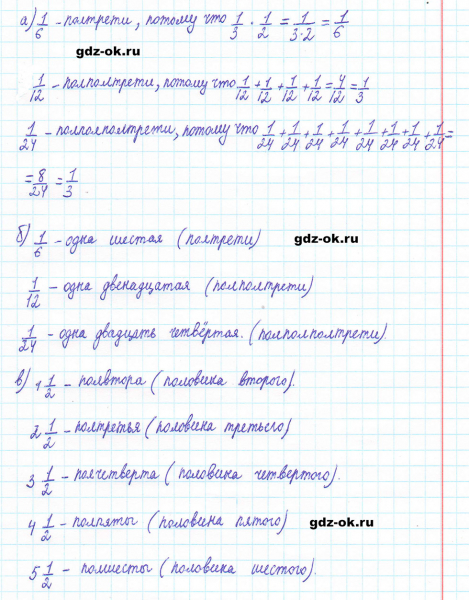 а) 1/6 - полтрети, потому что 1/3 · 1/2 = 1/(3·2) = 1/6
gdz-ok.ru
1/12 - полполтрети, потому что 1/12 + 1/12 + 1/12 + 1/12 = 4/12 = 1/3
1/24 - полполполтрети, потому что 1/24 + 1/24 + 1/24 + 1/24 + 1/24 + 1/24 + 1/24 + 1/24 =
= 8/24 = 1/3.
б) 1/6 - одна шестая (полтрети) gdz-ok.ru
1/12 - одна двенадцатая (полполтрети)
1/24 - одна двадцать четвёртая. (полполполтрети).
в) 1 1/2 - полвтора (половина второго).
2 1/2 - полтретья (половина третьего)
3 1/2 - полчетверта (половина четвертого).
4 1/2 - полпяты (половина пятого) gdz-ok.ru
5 1/2 - полшесты (половина шестого).